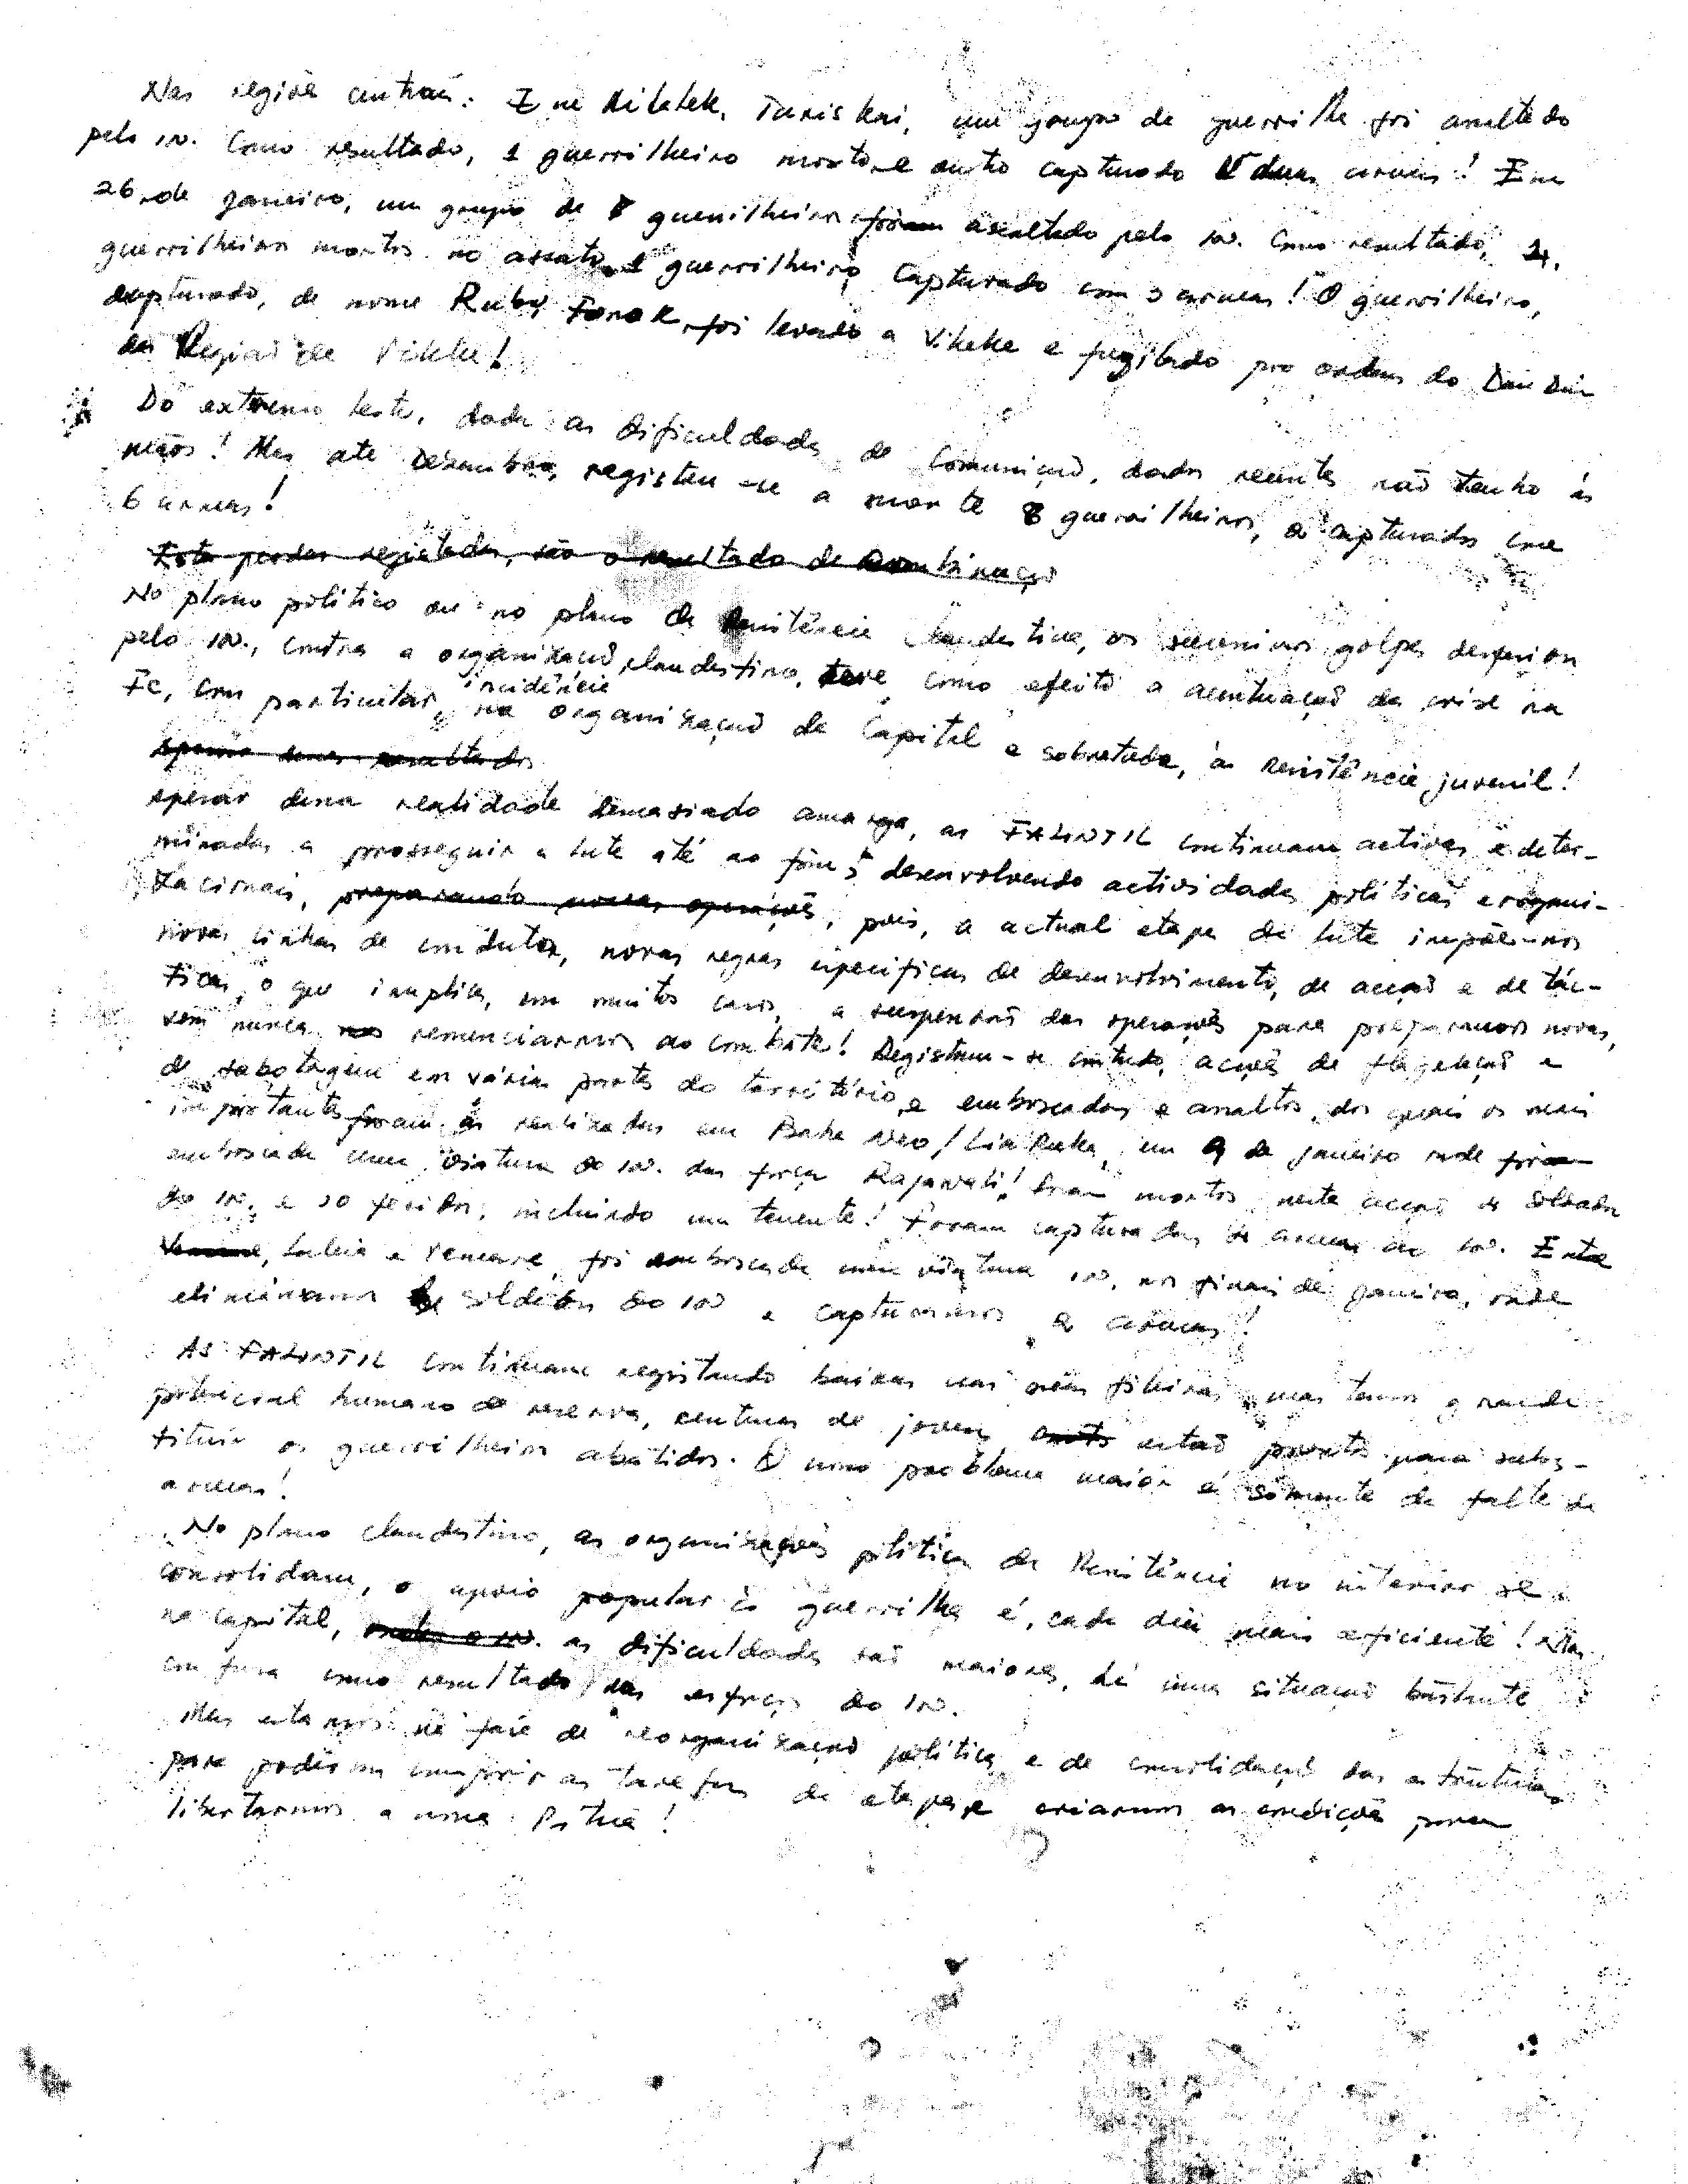 Nas regiões centrais: Em Kilalek, Turiskai, um grupo de guerrilha foi assaltado
pelo in. Como resultado, 1 guerrilheiro morto e outro capturado duas armas! Em
26 de janeiro, um grupo de 8 guerrilheiros foram assaltado pelo in. Como resultado, 2
guerrilheiros mortos no assalto, 1 guerrilheiro capturado com 3 armas! O guerrilheiro,
capturado, de nome Ruby Fonok, foi levado a Vikeke e fuzilado por ordens do Dan Dim
da Região de Vikeke!
Do extremo leste, dada as dificuldades de comunicação, dados recentes não tenho às
mãos! Mas até Dezembro, registou-se a morte 8 guerrilheiros, capturados com
6 armas!
Estas perdas registadas, são o resultado de combinação
No plano político ou no plano da Resistência Clandestina, os sucessivos golpes desferidos
pelo in., contra a organização clandestina, teve como efeito a acentuação da crise na
Fc, com particular incidência na organização da Capital e sobretudo, à resistência juvenil!
apesar desses resultados
apesar dessa realidade demasiado amarga, as FALINTIL continuam activas e deter-
minadas a prosseguir a luta até ao fim; desenvolvendo actividades políticas e organi-
zacionais, preparando novas operações, pois, a actual etapa da luta impõe-nos
novas linhas de conduta, novas regras específicas de desenvolvimento, de acção e de tác-
ticas, o que implica, em muitos casos, a suspensão das operações para prepararmos novas,
sem nunca nos renunciarmos ao combate! Registam-se contudo, acções de flagelação e
de sabotagem em várias partes do território e emboscadas e assaltos, dos quais os mais
importantes foram as realizadas em Baha Neo/Lia Ruka, em 9 de janeiro onde foram
emboscada uma viatura do in. das força Rajawali! Foram mortos nesta acção soldados
do in. e 10 feridos, incluindo um tenente! Foram capturadas armas ao in. Entre
Venuve, Luleia e Vemase, foi emboscada uma viatura in, nos finais de janeiro, onde
eliminámos soldados do in e capturamos 2 armas!
As FALINTIL continuam registando baixas nas suas fileiras, mas temos grande
potencial humano de reserva, centenas de jovens estão prontos para subs-
tituir os guerrilheiros abatidos. O nosso problema maior é somente da falta de
armas!
No plano clandestino, as organizações política da Resistência no interior se
consolidam, o apoio popular à guerrilha é, cada dia mais eficiente! Mas
na capital, as dificuldades são maiores, há uma situação bastante
confusa como resultado dos esforços do in.
Mas estamos na fase de reorganização política e de consolidação das estruturas
para podermos cumprir as tarefas da etapa e criarmos as condições para
libertarmos a nossa Pátria!